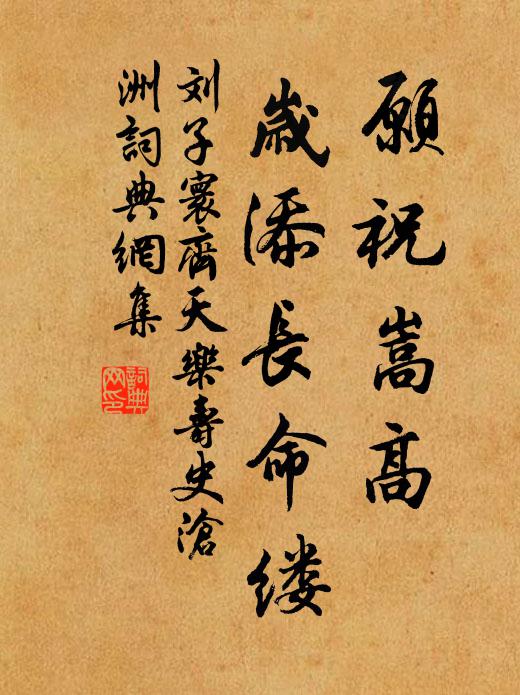 願祝嵩高
歲添長命缕
刘子寰齊天樂壽史滄
洲詞典網集
詞典
网印